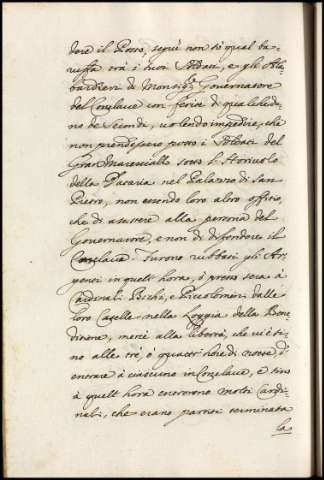 dore il Posto, seguì non sò qual ba-
ruffa trà i suoi Soldati, e gli Ala-
bardieri di Monsig.r Governatore
del Conclave con ferire di qualched'u-
no de Secondi, volendo impedire, che
non prendessero posto i Soldati del
Gran Maresciallo sotto l'Horivolo
della Dataria nel Palazzo di San
Pietro, non essendo loro altro offitio,
che di assistere alla persona del
Governatore, e non di difendere il
Conclave. Furono rubbati gli Ar-
genti in quell'hora, i prens sera à
Cardinali Bichi, e Piccolomini dalle
loro Caselle nella Loggia della Bene
dizione, mercè alla libertà, che vi è si-
no alle trè, ò quattr'hore di notte, d'
entrare à ciascuno in Conclave, e sino
à quell'hora entrorono molti Cardi-
nali, che erano partiti terminata
la